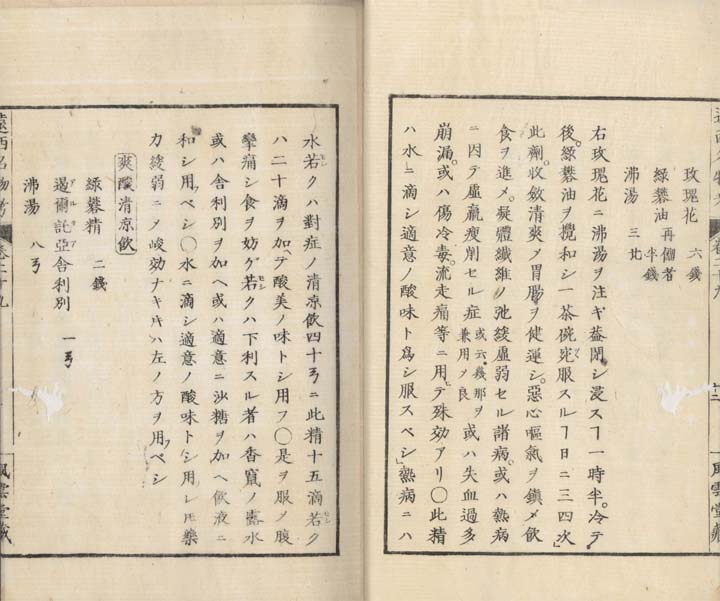 玫瑰花 六錢
綠礬油 再餾者 半錢
沸湯 三
右玫瑰花ニ沸湯ヲ注ギ蓋閉シ浸スヿ一時半。冷テ
後。綠礬油ヲ攪和シ一茶碗宛服スルヿ日ニ三四次」
此劑。收斂清爽メ胃腸ヲ健運シ。惡心嘔氣ヲ鎮メ飲
食ヲ進メ。凝體纖維ノ弛緩虛弱セル諸病。或ハ熱病
ニ因テ虛羸瘦削セル症 或云幾那ヲ兼用メ良 或ハ失血過多
崩漏。或ハ傷冷毒。流走痛等ニ用ヒテ殊効アリ〇此精
ハ水ニ滴シ適意ノ酸味ト爲シ服スベシ」熱病ニハ
水若クハ對症ノ清凉飲四十ニ此精十五滴若ク
ハ二十滴ヲ加ヘテ酸美ノ味トシ用フ〇是ヲ服メ腹
攣痛シ食ヲ妨ゲ若クハ下利スル者ハ香竄ノ露水
或ハ舍利別ヲ加ヘ或ハ適意ニ沙糖ヲ加ヘ飲液ニ
和シ用フベシ〇水ニ滴シ適意ノ酸味トシ用レ𪜈藥
力緩弱ニメ峻効ナキキハ左ノ方ヲ用フベシ
爽酸清凉飲
綠礬精 二錢
遏爾託亞舍利別 一
沸湯 八
遠西名物考 卷二十九
風雲堂藏